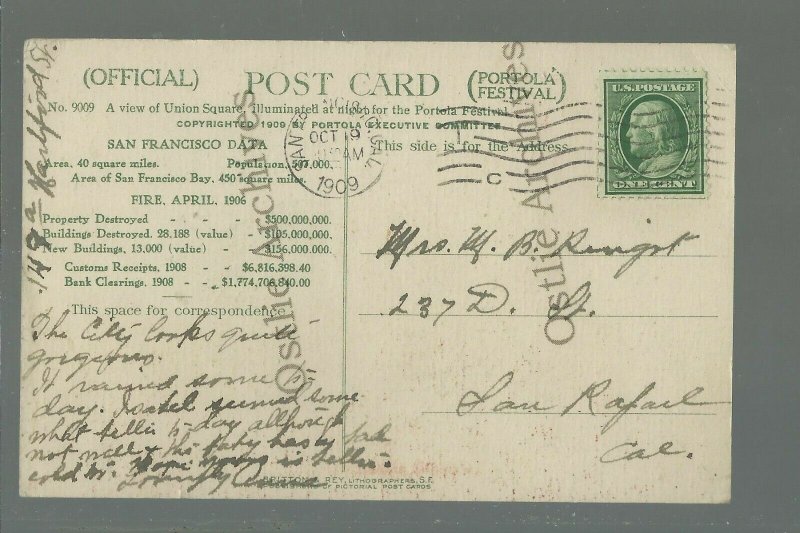 (OFFICIAL) POST CARD (PORTOLA FESTIVAL)
No. 9009 A view of Union Square, illuminated at night for the Portola Festival
COPYRIGHTED 1909 BY PORTOLA EXECUTIVE COMMITTEE
SAN FRANCISCO DATA
Area, 40 square miles. Population, 507,000.
Area of San Francisco Bay, 450 square miles.
FIRE, APRIL, 1906
Property Destroyed - - - $500,000,000.
Buildings Destroyed, 28,188 (value) - $105,000,000.
New Buildings, 13,000 (value) - - $156,000,000.
Customs Receipts, 1908 - - $6,816,398.40
Bank Clearings, 1908 - $1,774,708,840.00
This space for correspondence
This side is for the Address
OCT 19
AM
1909
C
U.S. POSTAGE
ONE CENT
149a Hartford St.
The City looks quite
gorgeous.
It rained some to-
day. Isabel seemed some
what better to-day although
not well & the baby has a bad
cold too. is better.
Mrs. M. B.
237 D. St.
San Rafael
Cal.
BRITTON & REY, LITHOGRAPHERS, S.F.
DESIGNERS OF PICTORIAL POST CARDS
Ostlie Archives
Ostlie Archives